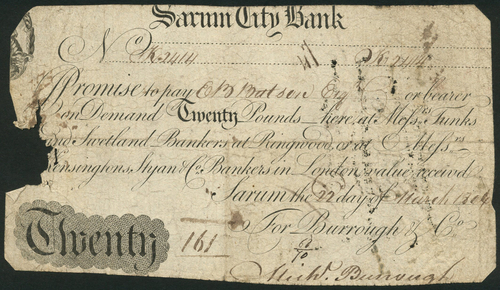 Sarum City Bank
No K2414 K2414
I Promise to pay or bearer
on Demand Twenty Pounds here, at Messrs. Tunks
and Swetland Bankers at Ringwood, or at Messrs.
Kensingtons, Styan & Co. Bankers in London, value received
Sarum the 22 day of March
Twenty 161 For Burrough & Co.
Michl. Burrough